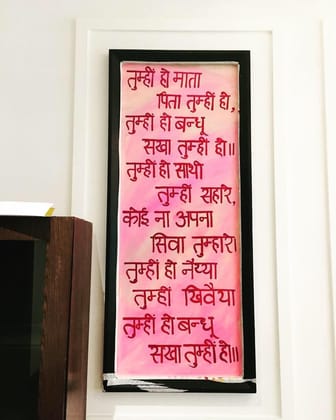 तुम्हीं हो माता
पिता तुम्हीं हो,
तुम्हीं हो बन्धू
सखा तुम्हीं हो॥
तुम्हीं हो साथी
तुम्हीं सहारे,
कोई ना अपना
सिवा तुम्हारे।
तुम्हीं हो नैय्या
तुम्हीं खिवैया
तुम्हीं हो बन्धू
सखा तुम्हीं हो॥